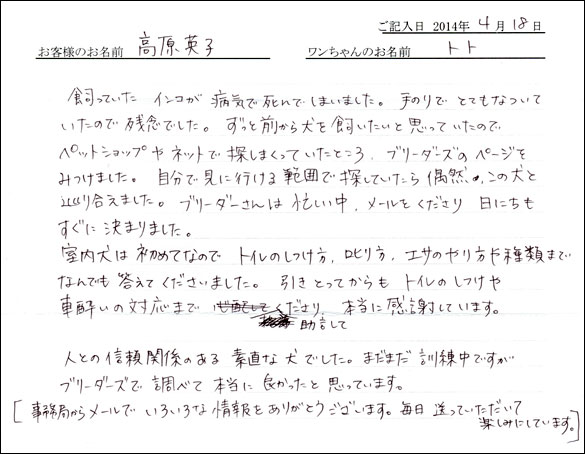 ご記入日 2014年 4月 18日
お客様のお名前 高原英子 ワンちゃんのお名前 トト
飼っていた インコが 病気で死んでしまいました。手のりで とてもなついて
いたので 残念でした。ずっと前から犬を飼いたいと思っていたので
ペットショップや ネットで 探しまくっていたところ、ブリーダーズのページを
みつけました。自分で見に行ける範囲で探していたら 偶然、この犬と
巡り合えました。ブリーダーさんは 忙しい中、メールをくださり 日にちも
すぐに 決まりました。
室内犬は 初めてなので トイレのしつけ方、叱り方、エサのやり方や種類まで
なんでも 答えてくださいました。引きとってからも トイレのしつけや
車酔いの対応まで くださり、本当に感謝しています。
助言して
人との信頼関係のある 素直な犬でした。まだまだ 訓練中ですが
ブリーダーズで 調べて 本当に 良かったと思っています。
[事務局からメールで いろいろな 情報をありがとうございます。毎日 送っていただいて
楽しみにしています。]